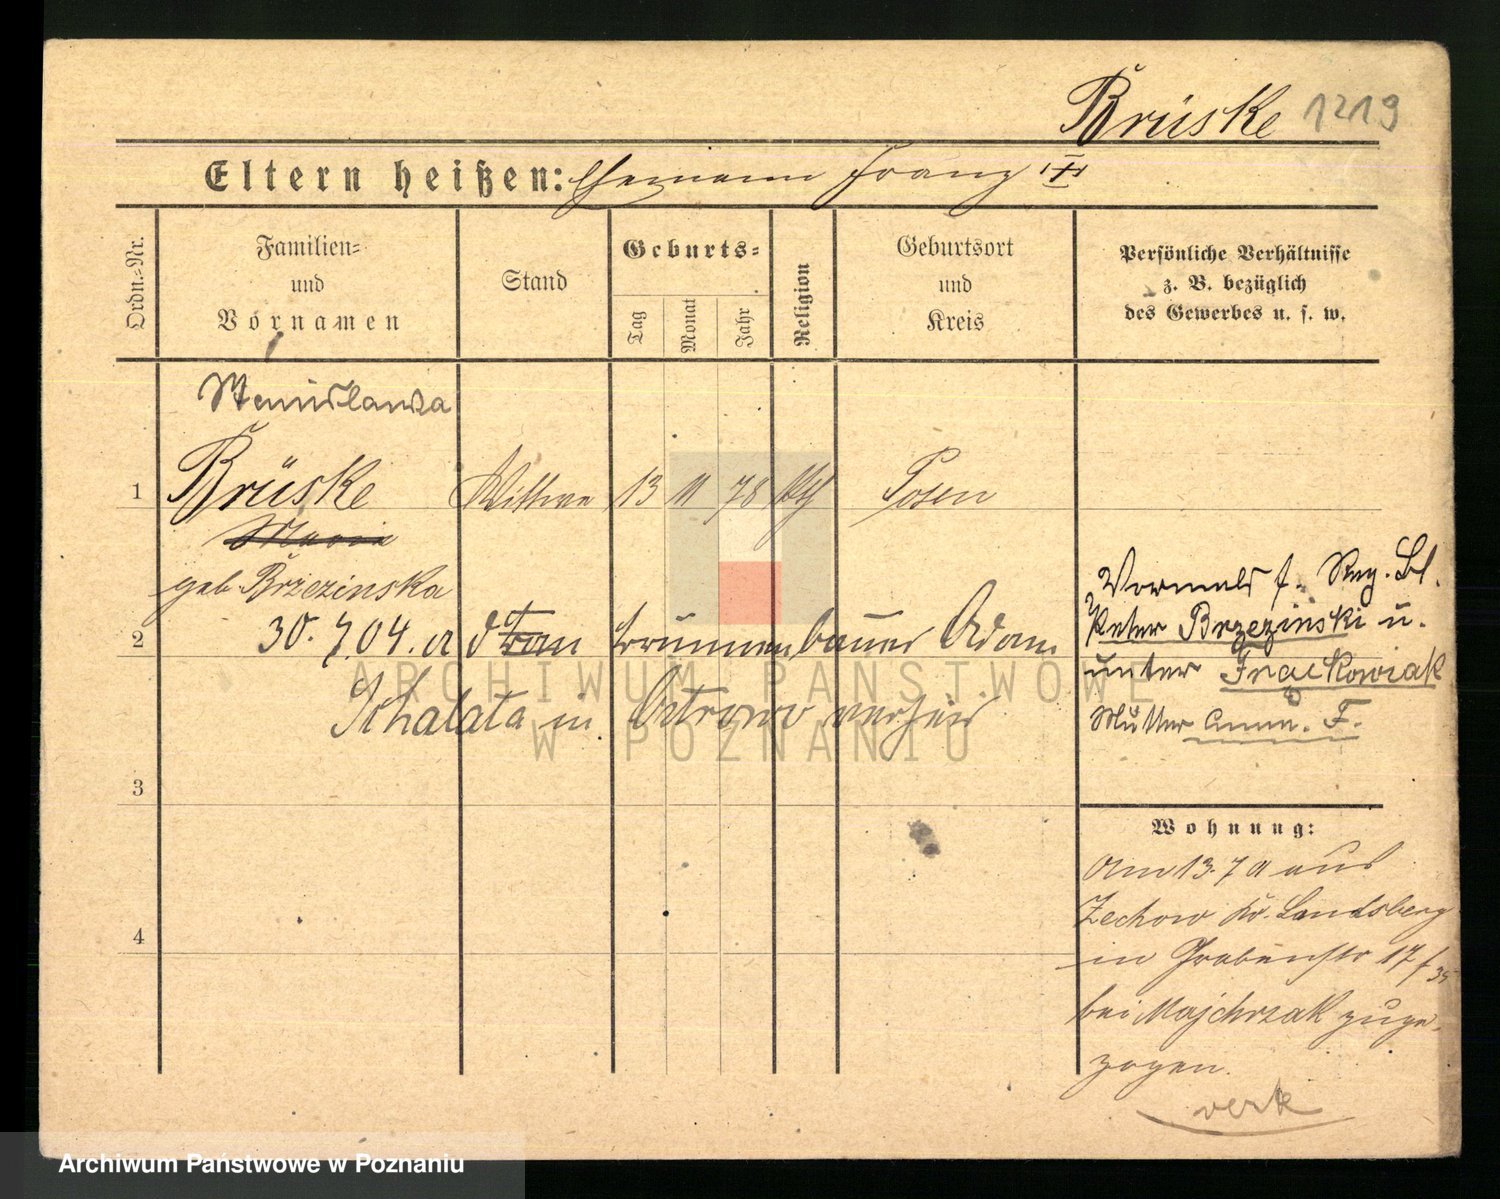 Brüske 1219
Eltern heißen: Ehemann Franz
Ordn.-Nr.
Familien-
und
Vornamen
Stand
Geburts-
Tag
Monat
Jahr
Religion
Geburtsort
und
Kreis
Persönliche Verhältnisse
z. B. bezüglich
des Gewerbes u. s. w.
Stanislawa
1 Brüske Wittwe 13 11 78 kth Posen
Maria
geb. Brzezinska
2 30. 7. 04. a d Brunnenbauer Adam
Schalata in Ostrowo verheir
Vormals f. Reg. Bl.
Peter Brzezinski u.
unter Frackowiak
Mutter Anna. F.
3
4
Wohnung:
Am 13. 7 a aus
Zechow Kr. Landsberg
in Grabenstr 17
bei Majchrzak zuge-
zogen.
verh
ARCHIWUM PAŃSTWOWE
W POZNANIU
Archiwum Państwowe w Poznaniu